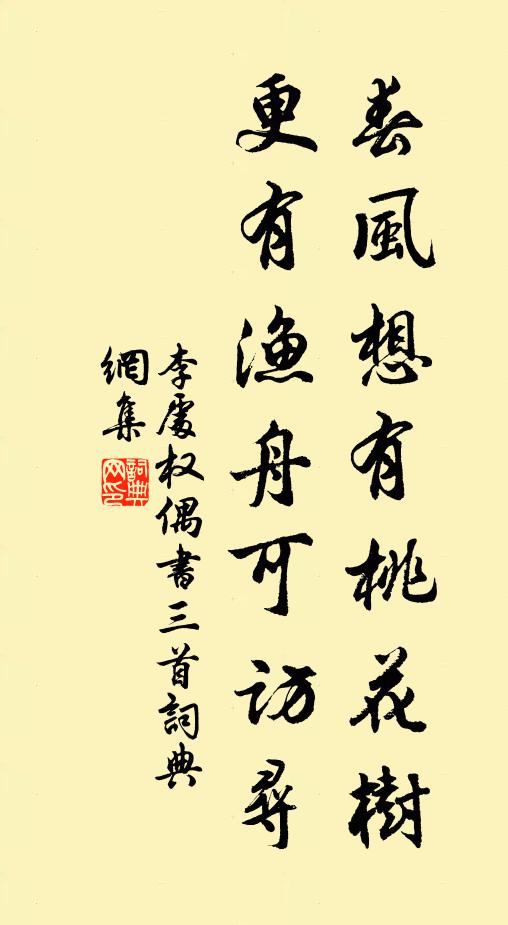 春風想有桃花樹
更有漁舟可訪尋
李處权偶書三首詞典
網集
詞典網印